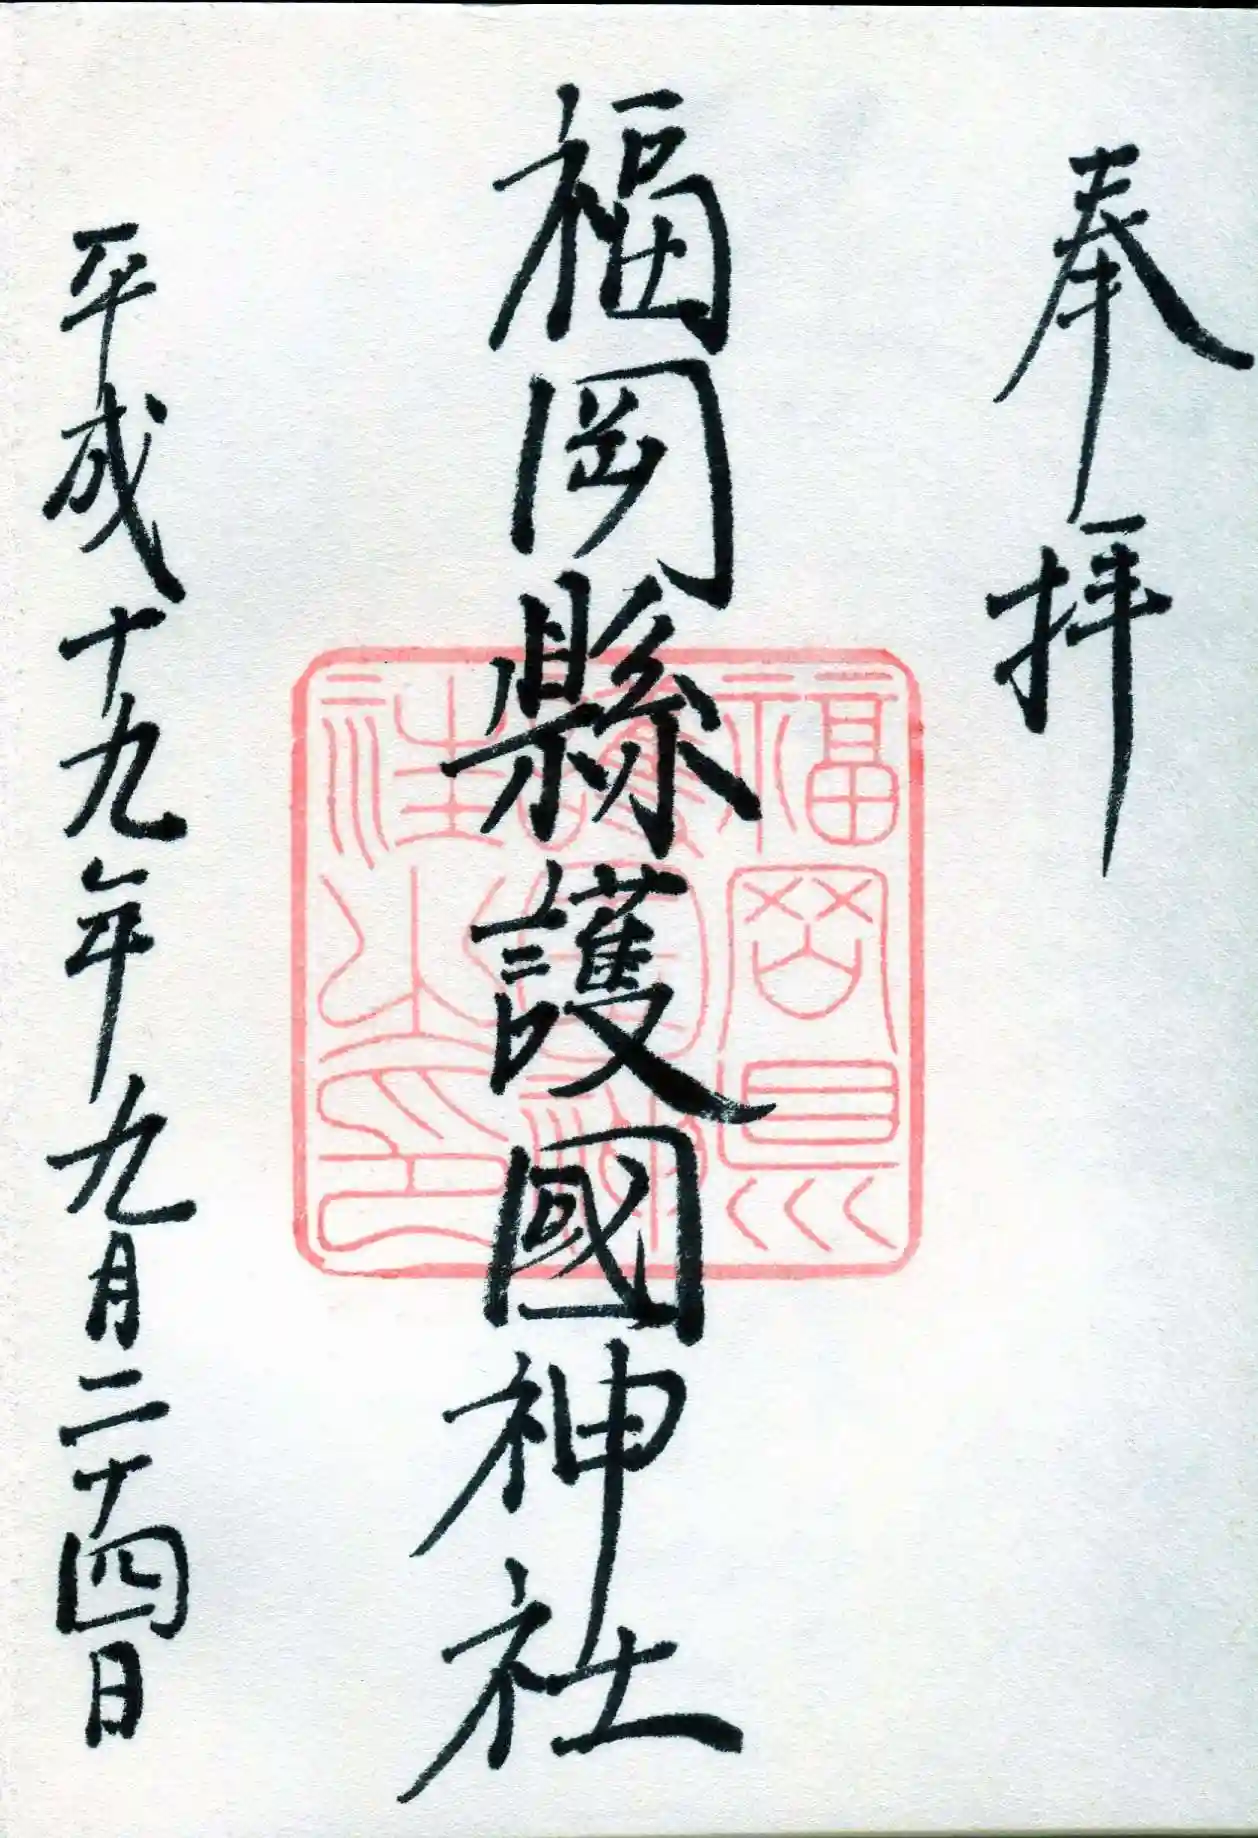 奉拝
福岡縣護國神社
福岡縣護國神社之印
平成十九年九月二十四日